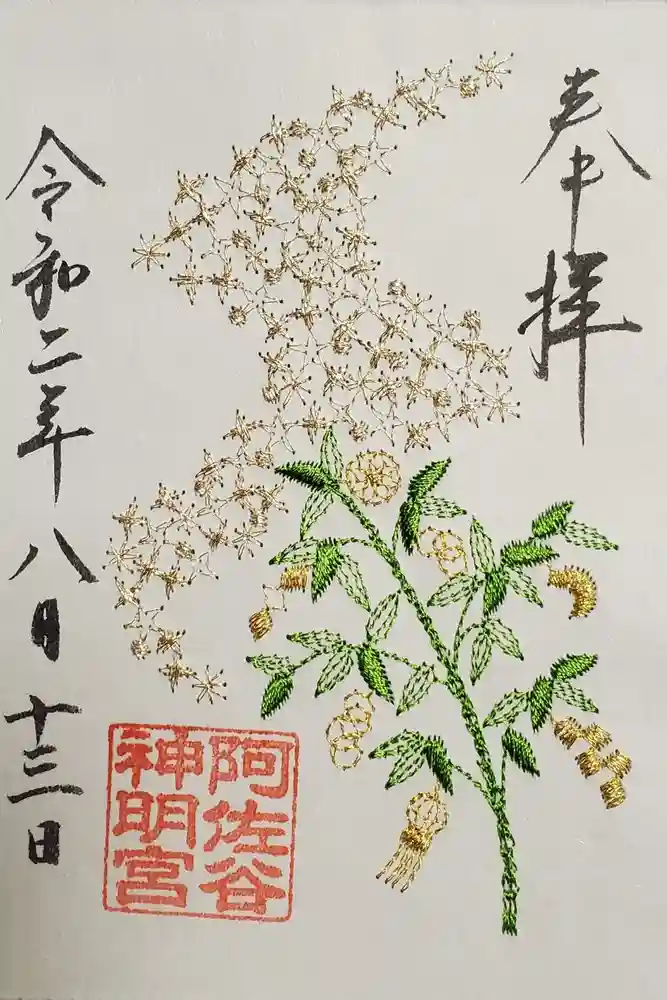 奉拝
阿佐谷
神明宮
令和二年八月十三日